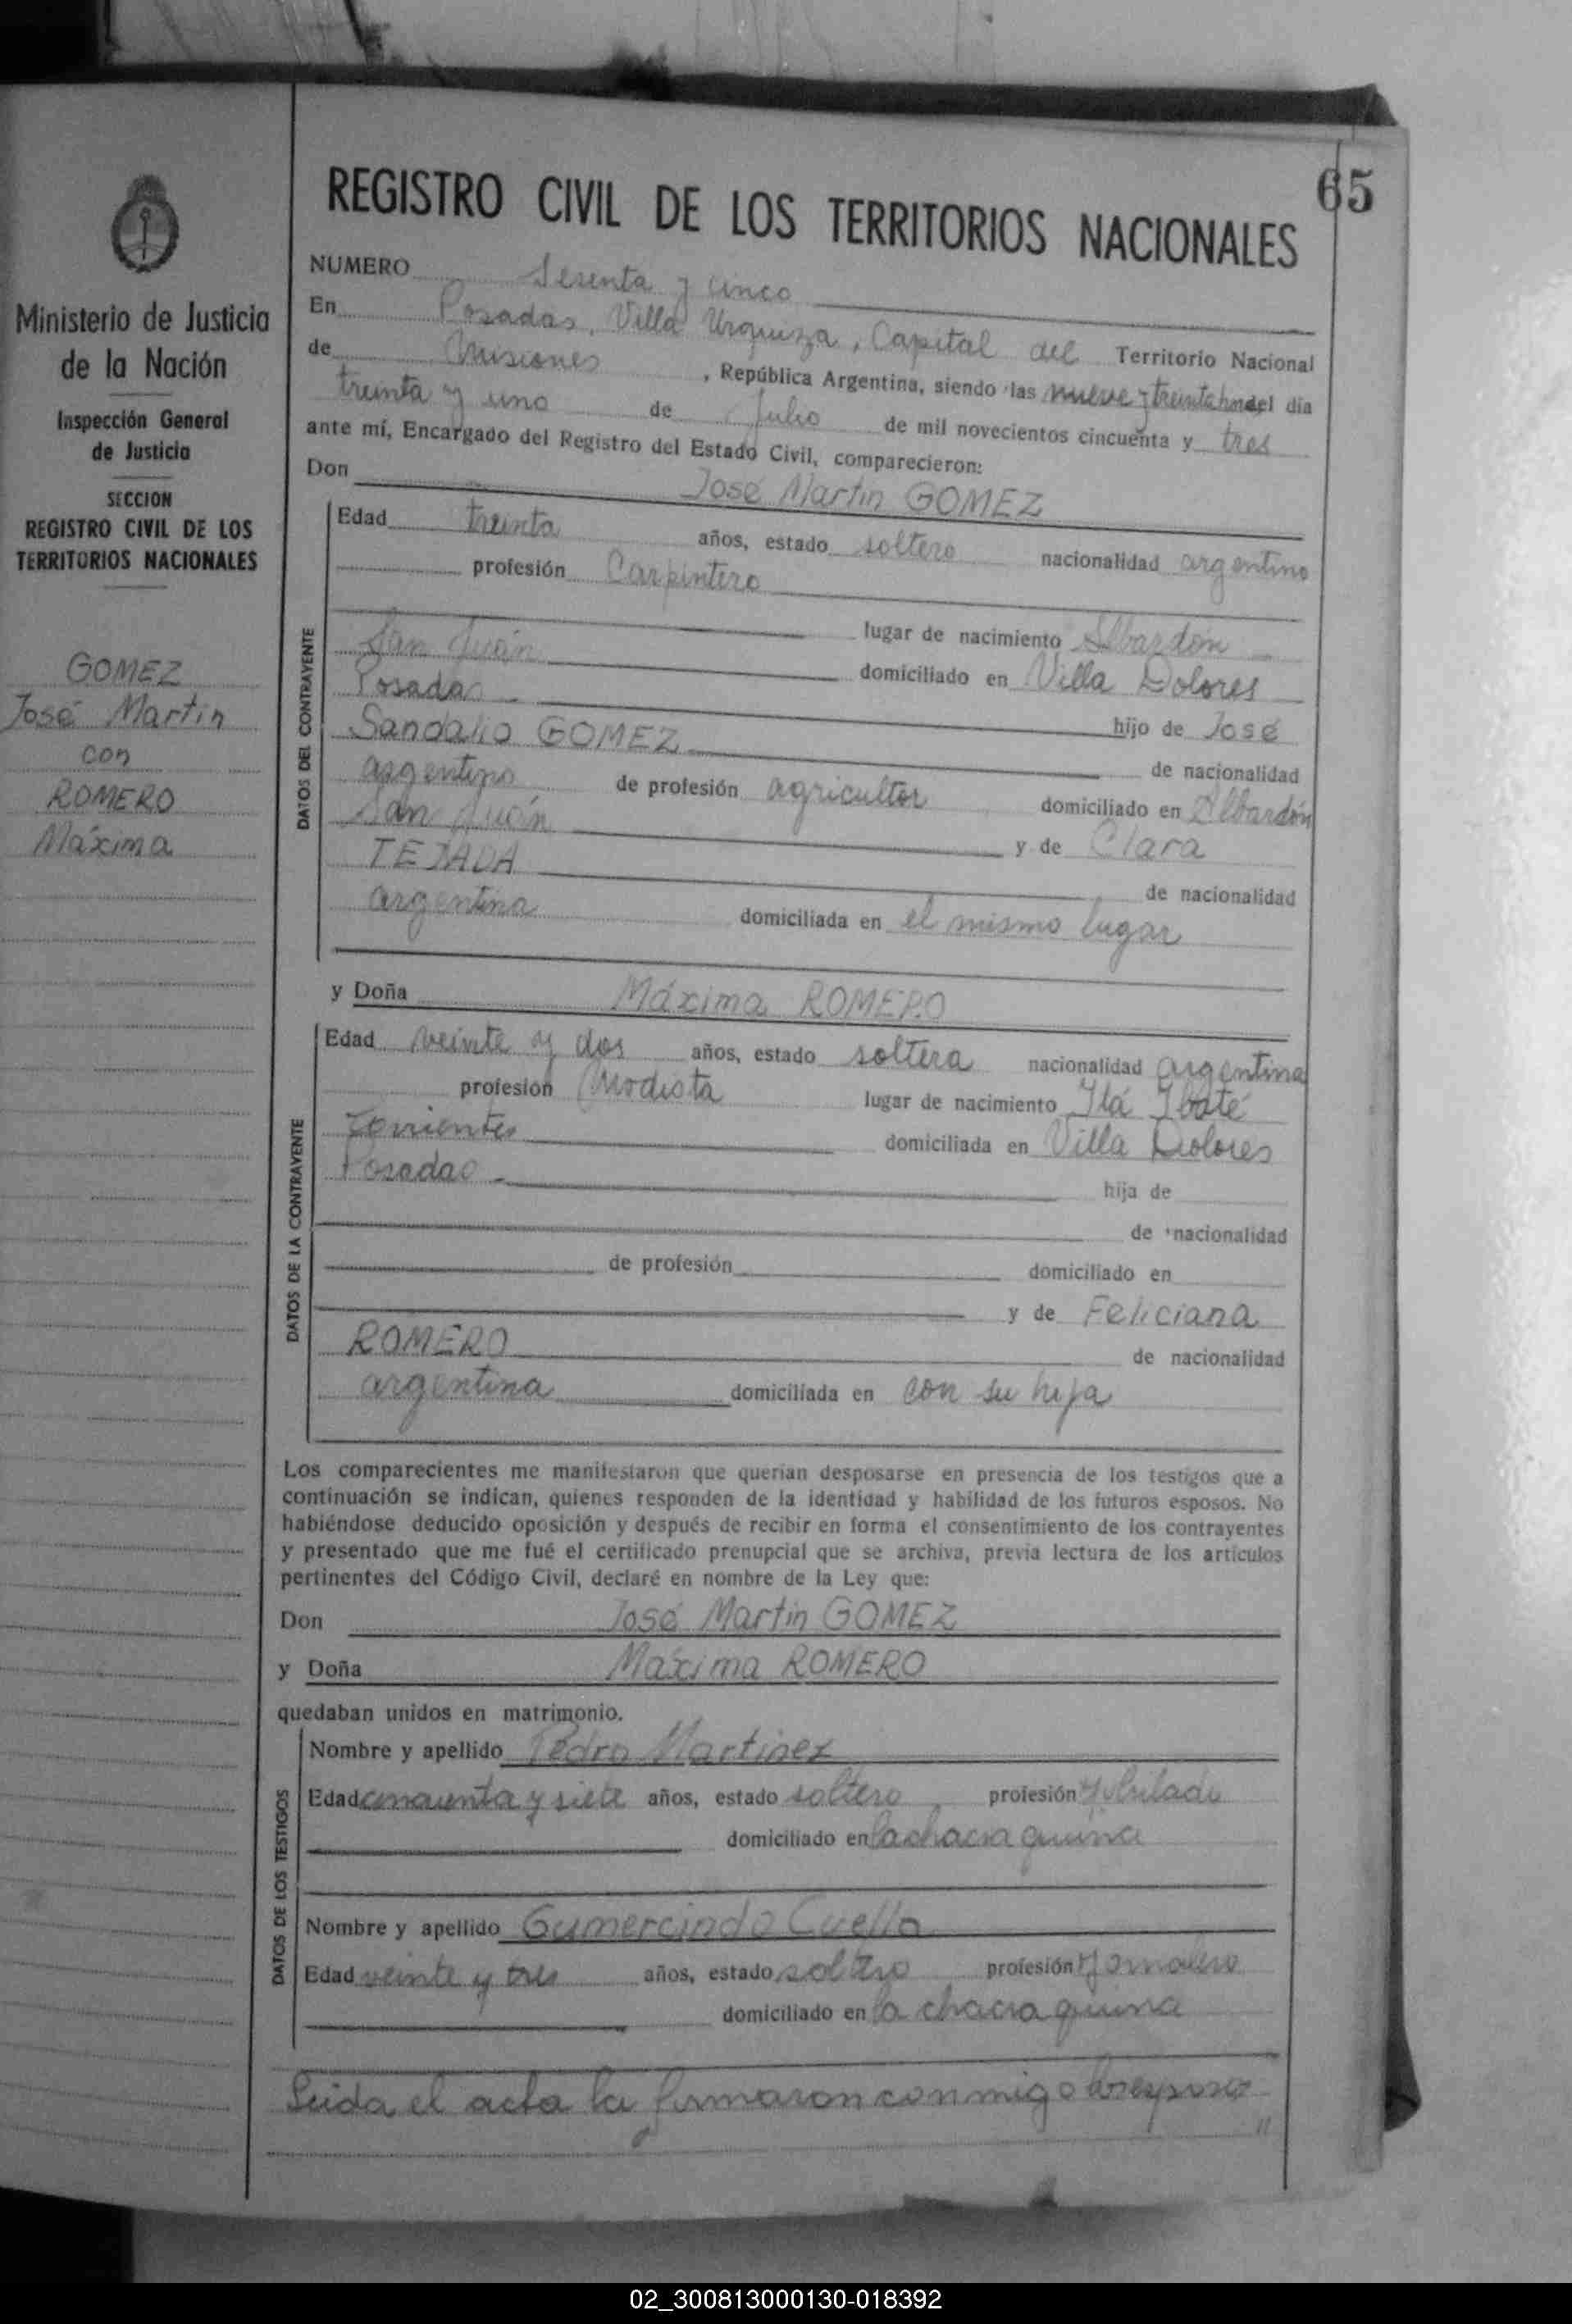 65
Ministerio de Justicia
de la Nación
Inspección General
de Justicia
SECCION
REGISTRO CIVIL DE LOS
TERRITORIOS NACIONALES
GOMEZ
José Martin
con
ROMERO
Máxima
REGISTRO CIVIL DE LOS TERRITORIOS NACIONALES
NUMERO Sesenta y cinco
En Posadas, Villa Urquiza, Capital del Territorio Nacional
de Misiones, República Argentina, siendo las nueve y treinta horas del día
treinta y uno de Julio de mil novecientos cincuenta y tres
ante mí, Encargado del Registro del Estado Civil, comparecieron:
Don José Martin GOMEZ
DATOS DEL CONTRAYENTE
Edad treinta años, estado soltero nacionalidad argentino
profesión Carpintero
lugar de nacimiento Albardón
San Juán domiciliado en Villa Dolores
Posadas hijo de José
Sandalio GOMEZ de nacionalidad
argentino de profesión agricultor domiciliado en Albardón
San Juán y de Clara
TEJADA de nacionalidad
argentina domiciliada en el mismo lugar
y Doña Máxima ROMERO
DATOS DE LA CONTRAYENTE
Edad veinte y dos años, estado soltera nacionalidad argentina
profesión Modista lugar de nacimiento Itá Ibaté
Corrientes domiciliada en Villa Dolores
Posadas hija de
de nacionalidad
de profesión domiciliado en
y de Feliciana
ROMERO de nacionalidad
argentina domiciliada en con su hija
Los comparecientes me manifestaron que querían desposarse en presencia de los testigos que a
continuación se indican, quienes responden de la identidad y habilidad de los futuros esposos. No
habiéndose deducido oposición y después de recibir en forma el consentimiento de los contrayentes
y presentado que me fué el certificado prenupcial que se archiva, previa lectura de los artículos
pertinentes del Código Civil, declaré en nombre de la Ley que:
Don José Martin GOMEZ
y Doña Maxima ROMERO
quedaban unidos en matrimonio.
DATOS DE LOS TESTIGOS
Nombre y apellido Pedro Martinez
Edad cincuenta y siete años, estado soltero profesión Jubilado
domiciliado en la chacra quince
Nombre y apellido Gumercindo Cuello
Edad veinte y tres años, estado soltero profesión Jornalero
domiciliado en la chacra quince
Leida el acta la firmaron conmigo los esposos
"
02_300813000130-018392